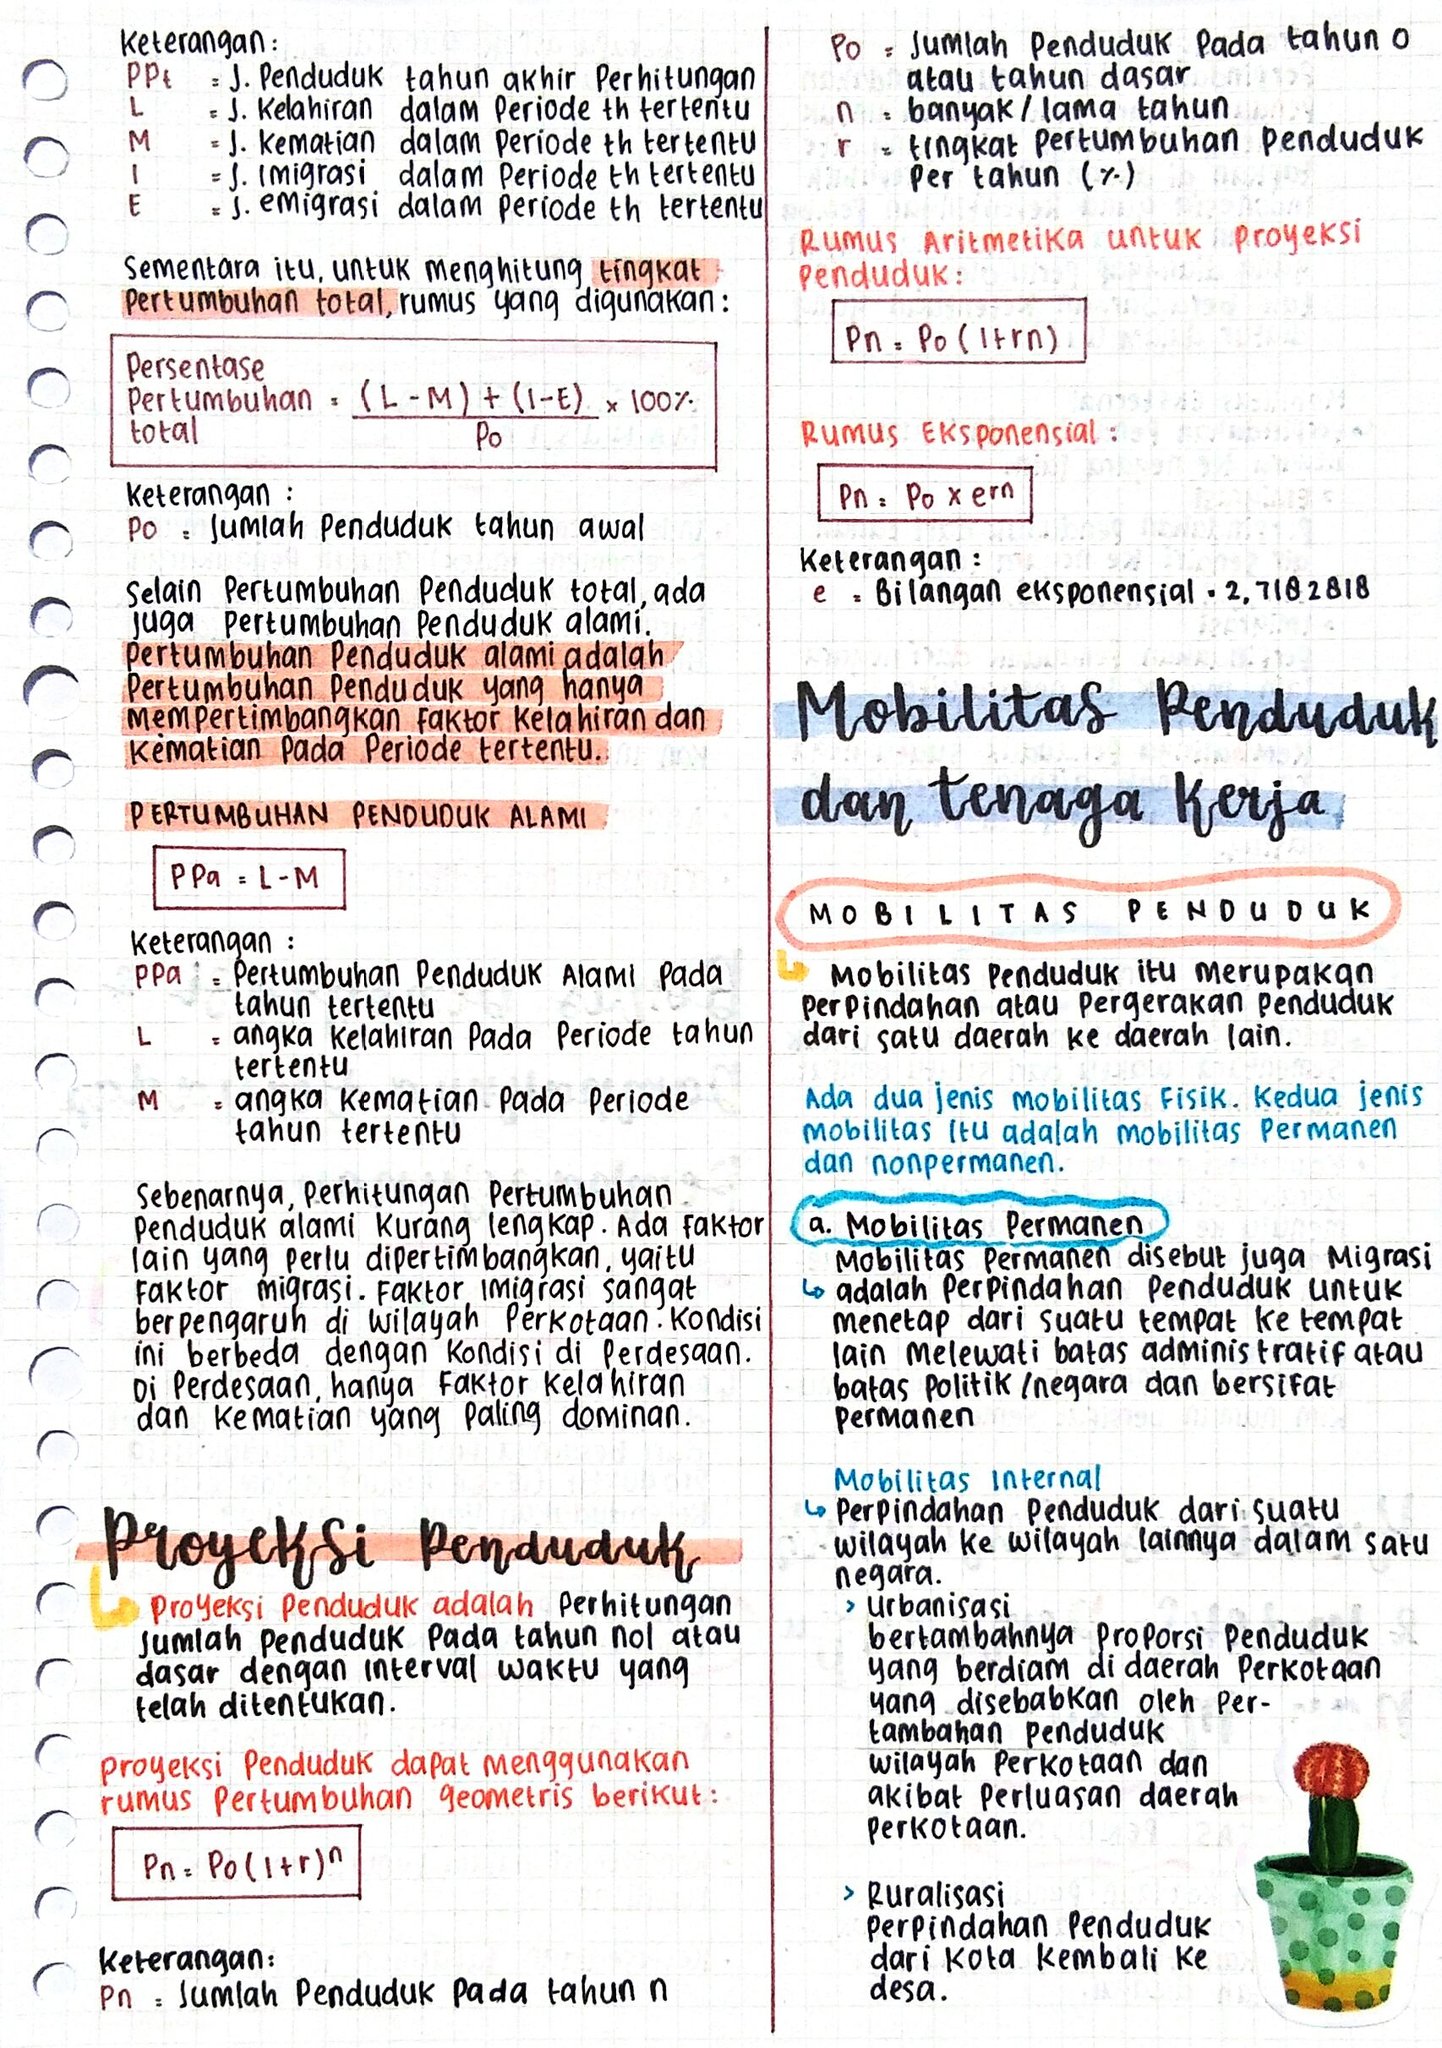 Keterangan:
PPt = J. Penduduk tahun akhir Perhitungan
L = J. Kelahiran dalam Periode th tertentu
M = J. Kematian dalam Periode th tertentu
I = J. imigrasi dalam Periode th tertentu
E = J. emigrasi dalam Periode th tertentu
Sementara itu, untuk menghitung tingkat
Pertumbuhan total, rumus yang digunakan:
Persentase
Pertumbuhan = (L-M) + (I-E) × 100%
total Po
Keterangan:
Po = Jumlah Penduduk tahun awal
Selain Pertumbuhan Penduduk total, ada
juga Pertumbuhan Penduduk alami.
Pertumbuhan Penduduk alami adalah
Pertumbuhan Penduduk yang hanya
mempertimbangkan faktor Kelahiran dan
Kematian Pada Periode tertentu.
PERTUMBUHAN PENDUDUK ALAMI
PPa = L-M
Keterangan:
PPa = Pertumbuhan Penduduk Alami Pada
tahun tertentu
L = angka Kelahiran Pada Periode tahun
tertentu
M = angka Kematian Pada Periode
tahun tertentu
Sebenarnya, Perhitungan Pertumbuhan
Penduduk alami Kurang lengkap. Ada Faktor
lain yang perlu dipertimbangkan, yaitu
Faktor migrasi. Faktor Imigrasi sangat
berpengaruh di wilayah Perkotaan. Kondisi
ini berbeda dengan Kondisi di Perdesaan.
Di Perdesaan, hanya Faktor Kelahiran
dan Kematian yang Paling dominan.
Proyeksi Penduduk
Proyeksi Penduduk adalah Perhitungan
Jumlah Penduduk Pada tahun nol atau
dasar dengan interval waktu yang
telah ditentukan.
Proyeksi Penduduk dapat menggunakan
rumus Pertumbuhan geometris berikut:
Pn = Po(1+r)ⁿ
Keterangan:
Pn = Jumlah Penduduk Pada tahun n
Po = Jumlah Penduduk Pada tahun 0
atau tahun dasar
n = banyak/lama tahun
r = tingkat Pertumbuhan Penduduk
Per tahun (%)
Rumus Aritmetika untuk Proyeksi
Penduduk:
Pn = Po(1+rn)
Rumus Eksponensial:
Pn = Po x ern
Keterangan:
e = Bilangan eksponensial = 2,7182818
Mobilitas Penduduk
dan tenaga Kerja
MOBILITAS PENDUDUK
Mobilitas Penduduk itu merupakan
Perpindahan atau Pergerakan Penduduk
dari satu daerah ke daerah lain.
Ada dua jenis mobilitas Fisik. Kedua jenis
mobilitas itu adalah mobilitas Permanen
dan nonpermanen.
a. Mobilitas Permanen
Mobilitas Permanen disebut juga Migrasi
adalah Perpindahan Penduduk untuk
menetap dari suatu tempat ke tempat
lain melewati batas administratif atau
batas Politik/negara dan bersifat
Permanen
Mobilitas Internal
Perpindahan Penduduk dari suatu
wilayah ke wilayah lainnya dalam satu
negara.
> Urbanisasi
bertambahnya Proporsi Penduduk
yang berdiam di daerah Perkotaan
yang disebabkan oleh Per-
tambahan Penduduk
wilayah Perkotaan dan
akibat Perluasan daerah
Perkotaan.
> Ruralisasi
Perpindahan Penduduk
dari Kota Kembali Ke
desa.